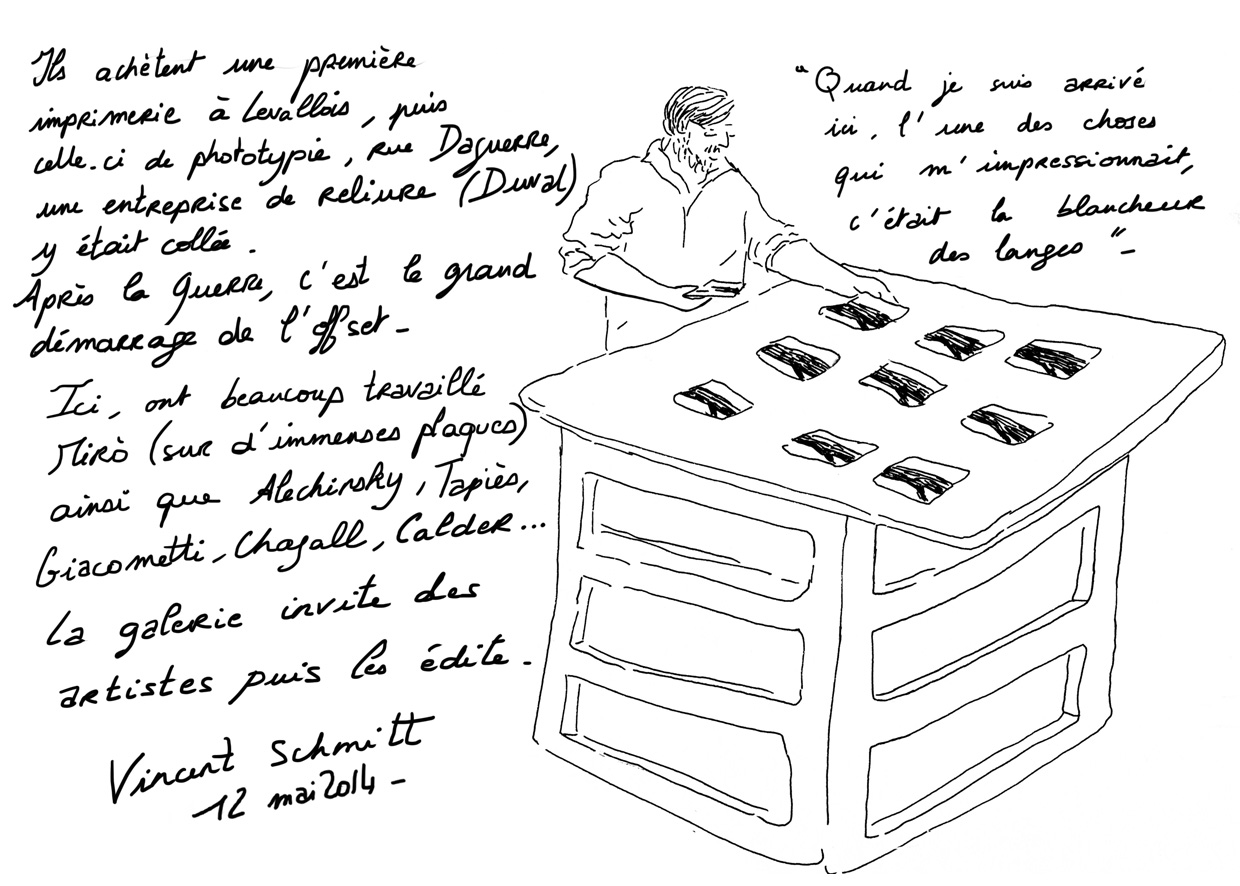 Ils achètent une première
imprimerie à Levallois, puis
celle.ci de phototypie, rue Daguerre,
une entreprise de reliure (Duval)
y était collée.
Après la Guerre, c'est le grand
démarrage de l'offset -
Ici, ont beaucoup travaillé
Mirò (sur d'immenses plaques)
ainsi que Alechinsky, Tapiès,
Giacometti, Chagall, Calder...
La galerie invite des
artistes puis les édite.
Vincent Schmitt
12 mai 2014 -
"Quand je suis arrivé
ici, l'une des choses
qui m'impressionnait,
c'était la blancheur
des langes" -